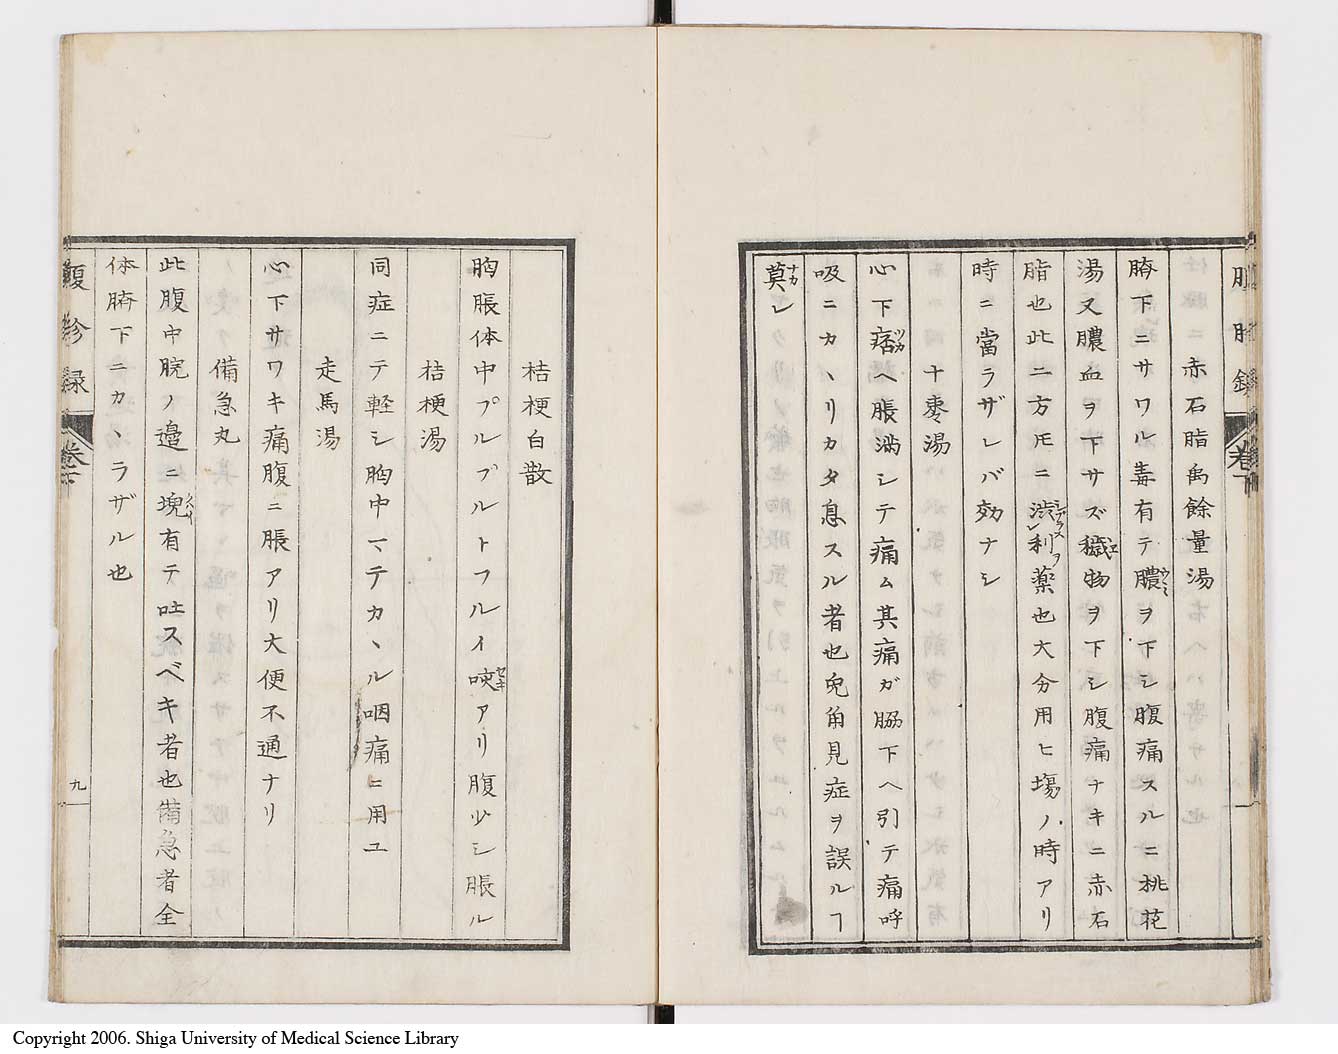 腹診録
卷下
赤石脂禹餘量湯
臍下ニサワル毒有テ膿ヲ下シ腹痛スルニ桃花
ウミ
湯又膿血ヲ下サズ穢物ヲ下シ腹痛ナキニ赤石
エ
脂也此二方𪜈ニ渋利薬也大分用ヒ塲ノ時アリ
時ニ當ラザレバ効ナシ
十棗湯
心下痞ヘ脹満シテ痛ム其痛ガ脇下ヘ引テ痛呼
ツカ
吸ニカヽリカタ息スル者也兎角見症ヲ誤ルヿ
莫レ
ナカ
桔梗白散
胸脹体中プルプルトフルイ咳アリ腹少シ脹ル
セキ
桔梗湯
同症ニテ軽シ胸中マテカヽル咽痛ヒ用ユ
走馬湯
心下サワキ痛腹ニ脹アリ大便不通ナリ
備急丸
此腹中脘ノ邉ニ塊有テ吐スベキ者也備急者全
体臍下ニカヽラザル也
腹診録
卷下
九
Copyright 2006. Shiga University of Medical Science Library